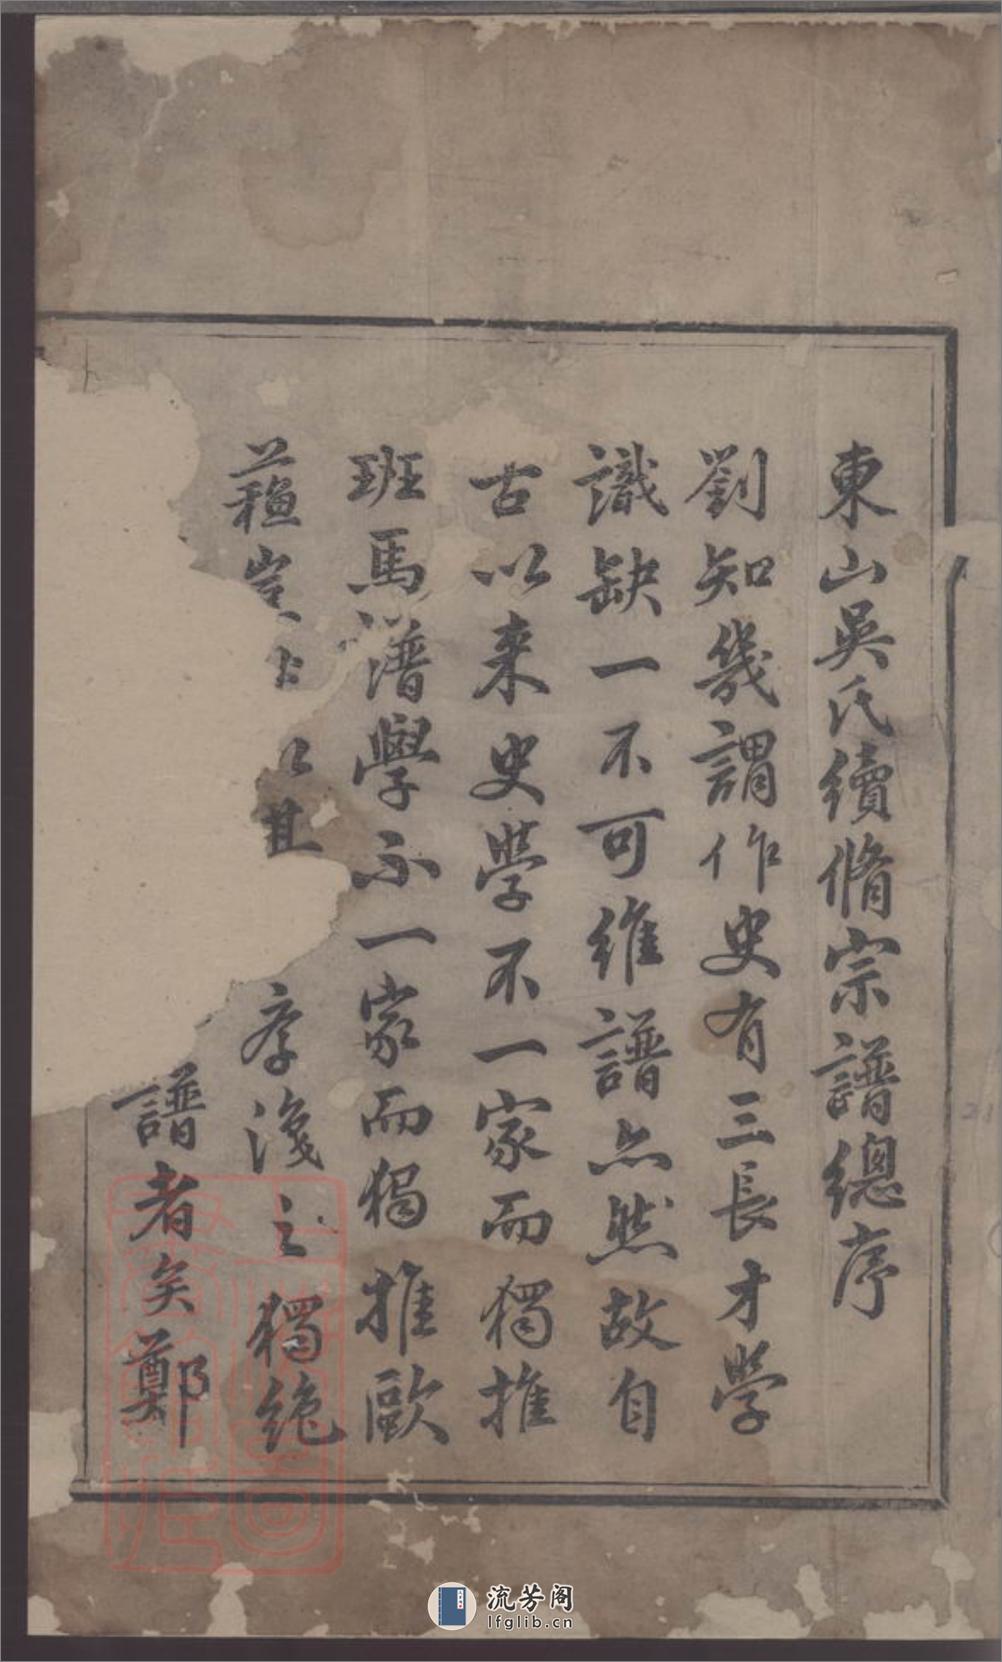 東山吳氏續脩宗譜總序
劉知幾謂作史有三長才學
識缺一不可維譜亦然故自
古以来史學不一家而獨推
班馬譜學亦一家而獨推歐
蘓豈 其 孝 之獨絶
譜者矣鄭
流芳阁
lfglib.cn